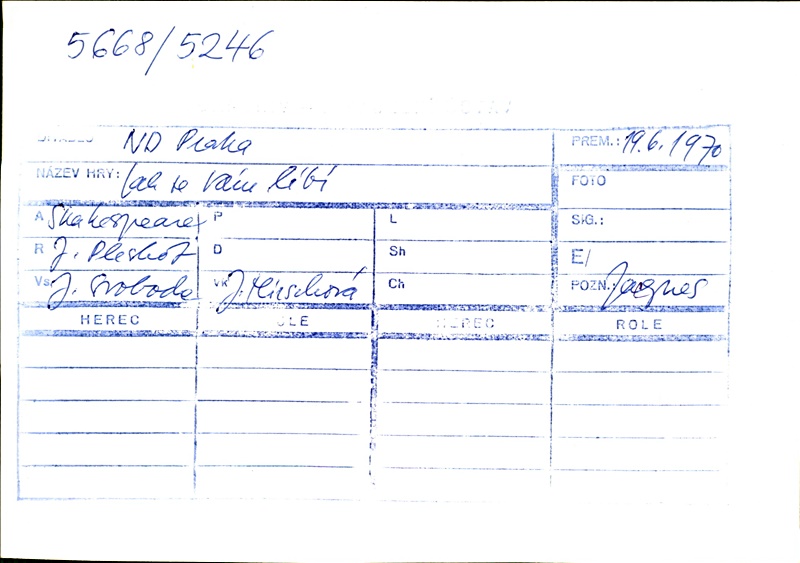 5668/5246
DIVADLO ND Praha PREM.: 19.6.1970
NÁZEV HRY: Jak se Vám líbí FOTO
A Shakespeare P L SIG.:
R J. Pleskot D Sh E/
Vs J. Svoboda VK J. Hirschová Ch POZN.: Jacques
HEREC ROLE HEREC ROLE